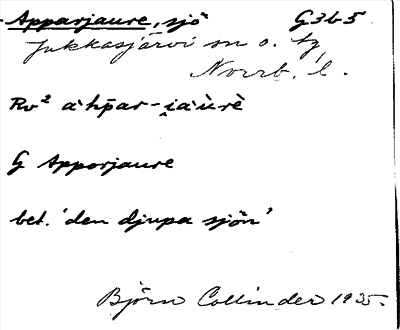 Apparjaure, sjö G3b5
Jukkasjärvi sn o. tg
Norrb. l.
Rv² a·hpar-i̯a·u̇rè
G Apporjaure
bet. 'den djupa sjön'
Björn Collinder 1925.